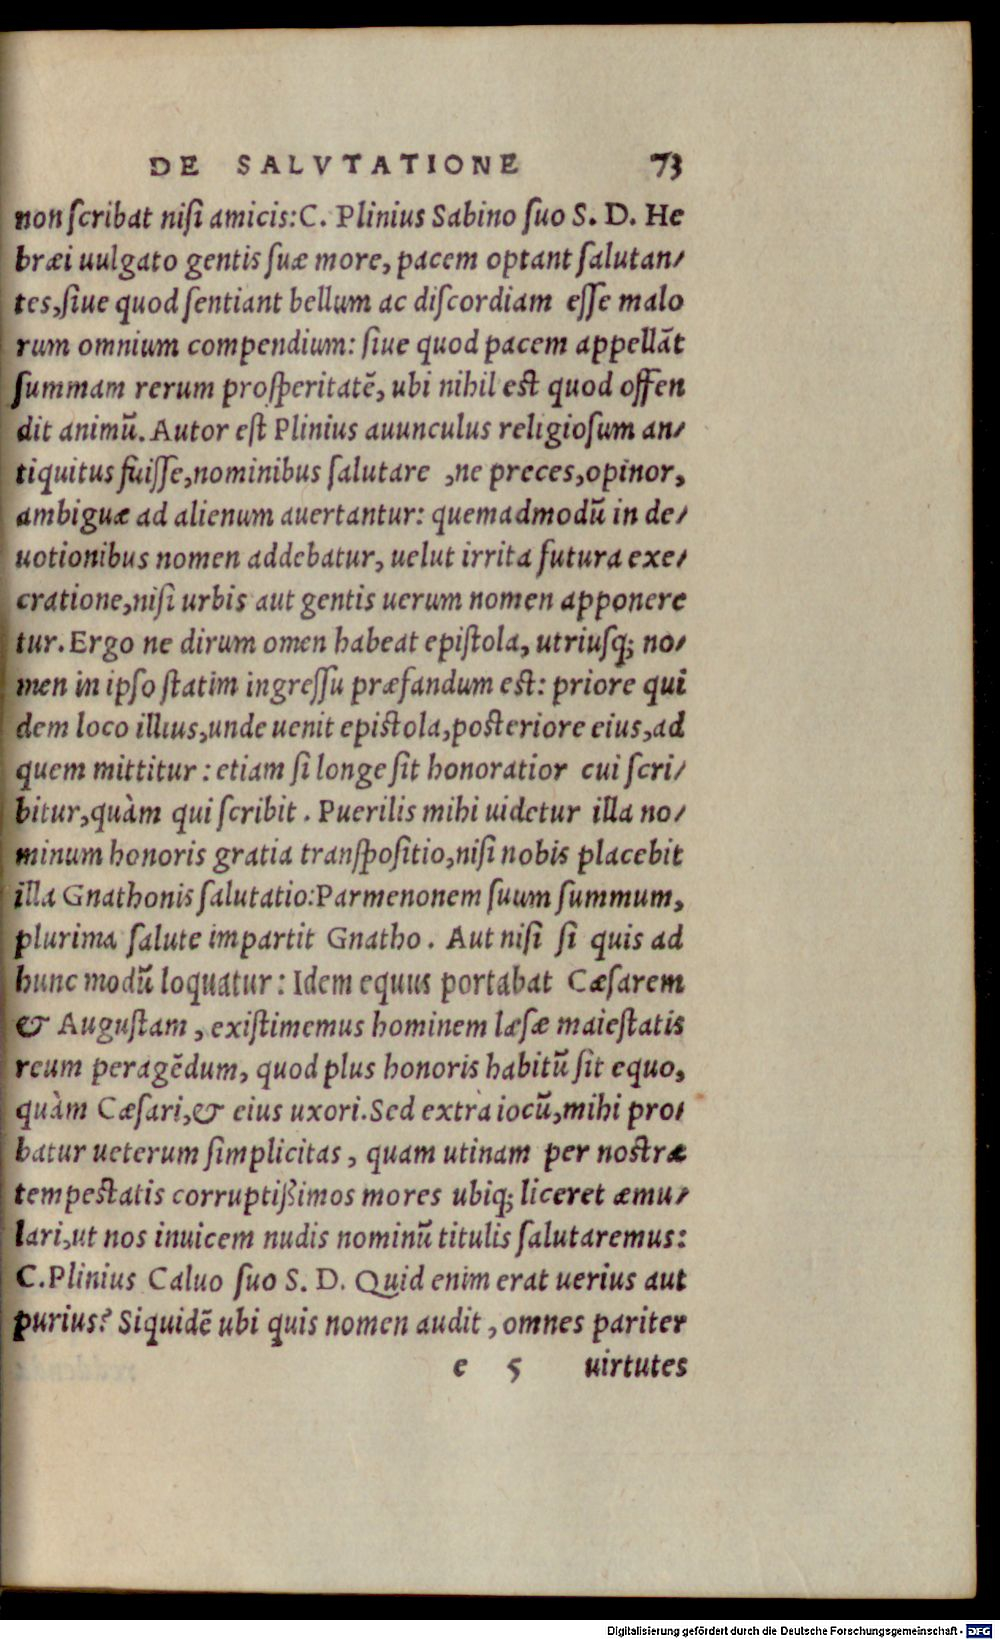 DE SALVTATIONE 73
non scribat nisi amicis: C. Plinius Sabino suo S. D. He
bræi uulgato gentis suæ more, pacem optant salutan/
tes, siue quod sentiant bellum ac discordiam esse malo
rum omnium compendium: siue quod pacem appellāt
summam rerum prosperitatē, ubi nihil est quod offen
dit animū. Autor est Plinius auunculus religiosum an/
tiquitus fuisse, nominibus salutare , ne preces, opinor,
ambiguæ ad alienum auertantur: quemadmodū in de/
uotionibus nomen addebatur, uelut irrita futura exe/
cratione, nisi urbis aut gentis uerum nomen apponere
tur. Ergo ne dirum omen habeat epistola, utriusq; no/
men in ipso statim ingressu præfandum est: priore qui
dem loco illius, unde uenit epistola, posteriore eius, ad
quem mittitur : etiam si longe sit honoratior cui scri/
bitur, quàm qui scribit . Puerilis mihi uidetur illa no/
minum honoris gratia transpositio, nisi nobis placebit
illa Gnathonis salutatio: Parmenonem suum summum,
plurima salute impartit Gnatho . Aut nisi si quis ad
hunc modū loquatur : Idem equus portabat Cæsarem
& Augustam , existimemus hominem læsæ maiestatis
reum peragēdum, quod plus honoris habitū sit equo,
quàm Cæsari, & eius uxori. Sed extra iocū, mihi pro/
batur ueterum simplicitas , quam utinam per nostræ
tempestatis corruptißimos mores ubiq; liceret æmu/
lari, ut nos inuicem nudis nominū titulis salutaremus:
C. Plinius Caluo suo S. D. Quid enim erat uerius aut
purius? Siquidē ubi quis nomen audit , omnes pariter
e 5 uirtutes
Digitalisierung gefördert durch die Deutsche Forschungsgemeinschaft - DFG